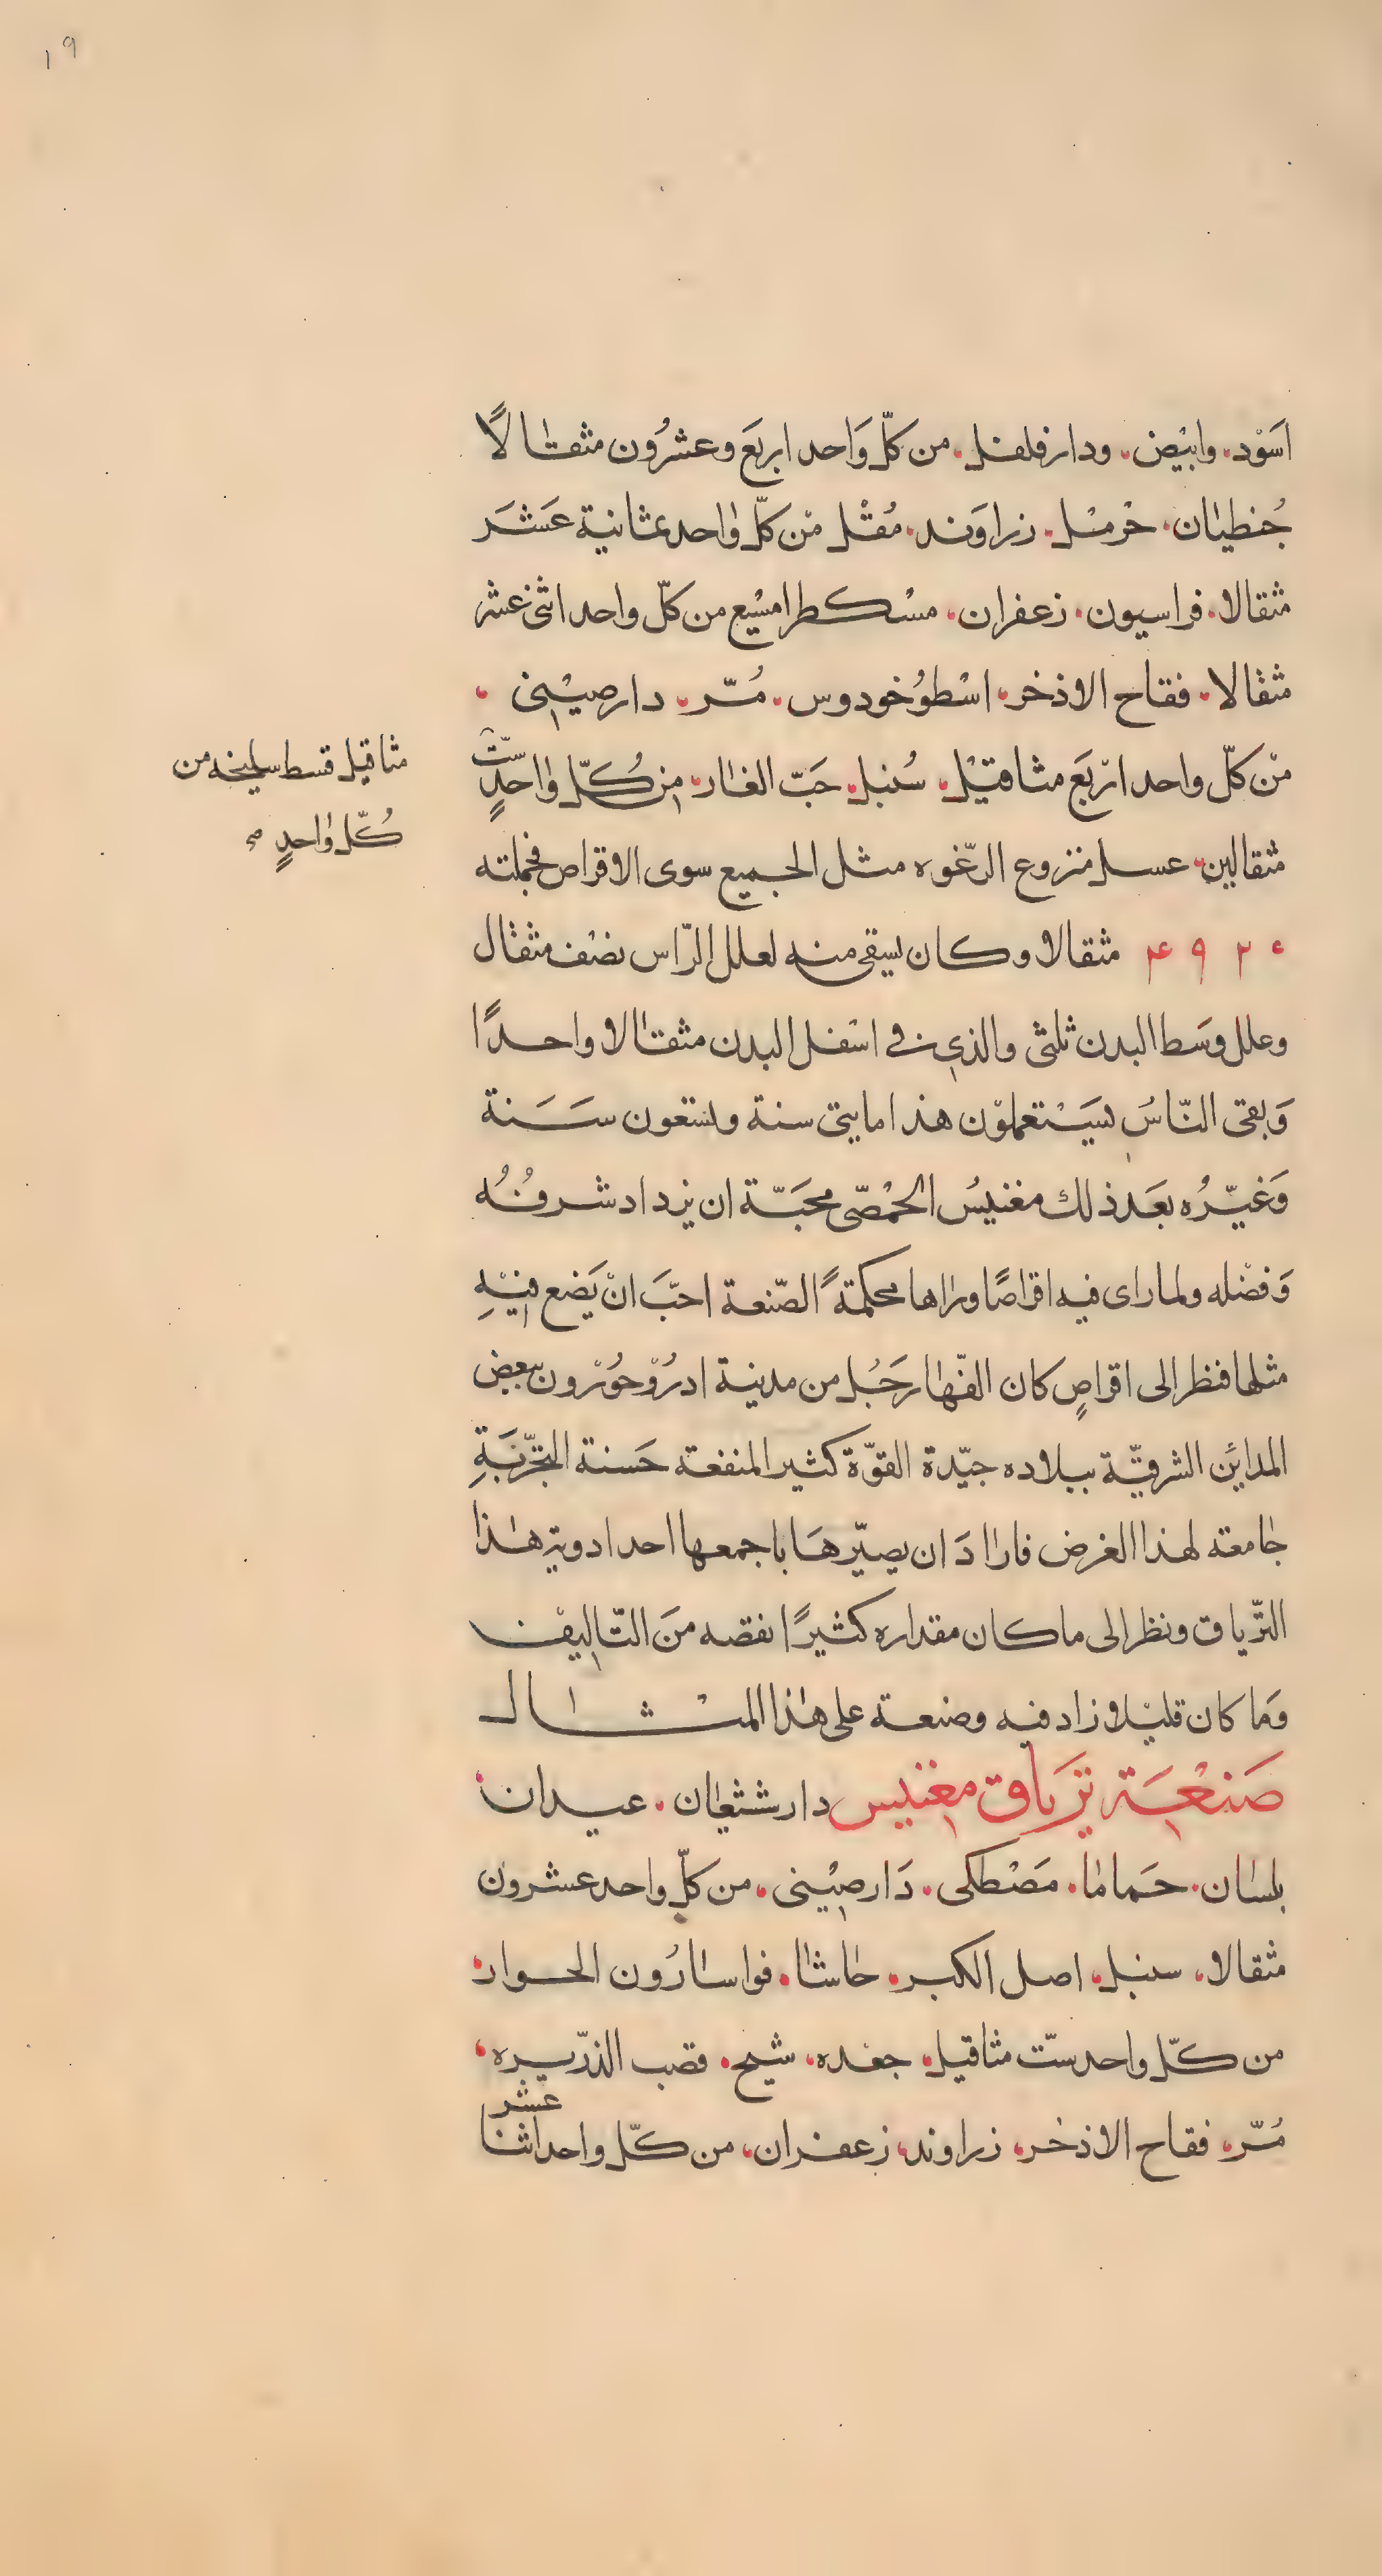 ١٩
اسَوْد، وابْيض، ودارفلفل، من كلّ وَاحد اربَع وعشرُون مثقالًا
جُنطيان، حْرمْل، زراوَند، مُقْل مْن كلّ واحد ثمانية عَشَر
مثقالا، فراسيون، زعفران، مسْكطرامسْيع من كلّ واحد اثنى عشر
مثقالا، فقاح الاذخر، اسْطوُخودوس، مُرّ، دارصيْنى،
مْن كلّ واحد ارْبَع مثاقيْل، سُنبل، حَبّ الغار، من كُلّ واحدٍ ستّ
مثاقيل قسط سليخه من
كُلّ واحدٍ صح
مثقالين، عسل منزوع الرّغوه مثل الجميع سوى الاقراص فجملته
مثقالا وكان يسقى منه لعلل الرّاس نصْف مثقال
وعلل وسَط البدن ثلثى والذى فى اسْفل البدن مثقالا واحدًا
وَبقى النّاسُ يسَيْتعملوْن هذا مايتى سنة وتسعون سَنة
وَغيّرُه بعَد ذلك مغنيسُ الحمْصّى محبَّة ان يزداد شرفُهُ
وَفضْله ولما راى فيه اقراصًا وراها محكمةً الصّنعة احبَّ انْ يَضع فيْهِ
مثلها فنظر الى اقراصٍ كان الفّها رَجُل من مدينة ادرُوْحُوْرون ببعض
المدائن الشرقيّة ببلاده جيّدة القوّة كثير المنفعة حَسنة التجْربَةِ
جامعة لهذا الغرض فارادَ ان يصيّرهَا باجمعها احد ادوية هذا
التّرياق ونظر الى ما كان مقداره كثيرًا نقصه منَ التّاليْف
وَما كان قليْلا زاد فيه وصنعة على هذا المثال
صَنْعَة ترَياق مغنيس دارشثعان، عيدان
بلسان، حَماما، مَصْطكى، دَارصيْنى، من كلّ واحد عشرون
مثقالا، سنبل، اصل الكبر، حاشا، فواسارُون الحوار،
من كلّ واحد ستّ مثاقيل، جعده، شيح، قصب الذرّيره،
مُرّ، فقاح الاذخر، زراوند، زعفران، من كلّ واحد اثنا عشر